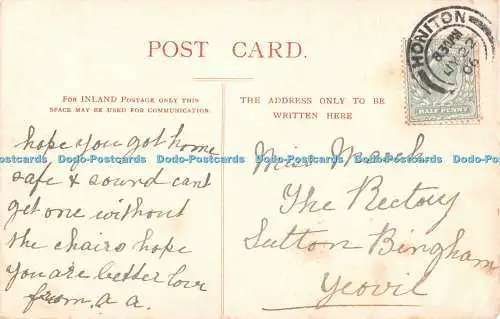 POST CARD.
HONITON
8.30 PM
06
HALF PENNY
FOR INLAND POSTAGE ONLY THIS
SPACE MAY BE USED FOR COMMUNICATION.
THE ADDRESS ONLY TO BE
WRITTEN HERE
hope you got home
safe & sound cant
get one without
the chairs hope
you are better love
from. a a.
Miss March
The Rectory
Sutton Bingham
Yeovil
Dodo-Postcards Dodo-Postcards Dodo-Postcards Dodo-Postcards Dodo-Postcards Dodo-Postcards